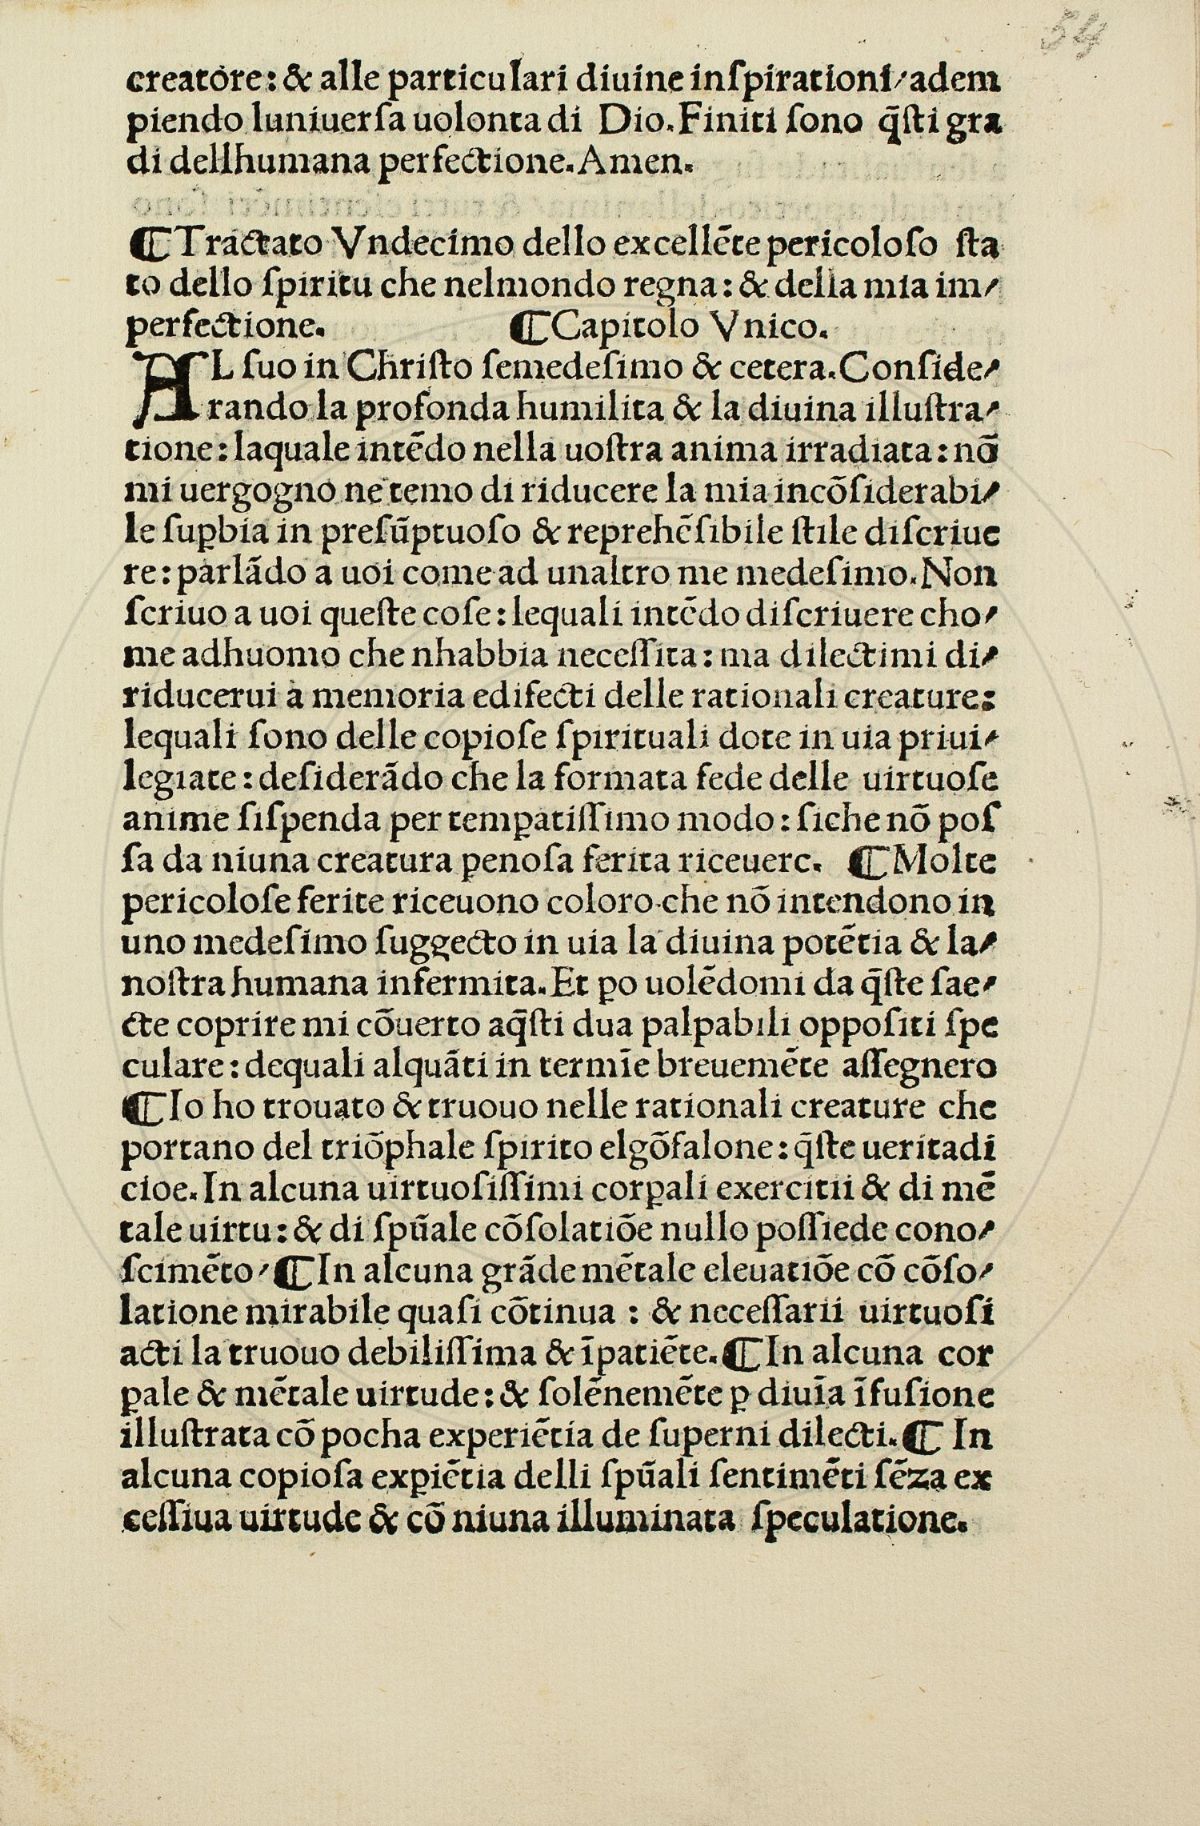 54
creatore: & alle particulari diuine inſpirationi/adem
piendo luniuerſa uolonta di Dio. Finiti ſono q̄ſti gra
di dellhumana perfectione. Amen.
¶Tractato Vndecimo dello excellēte pericoloſo ſta
to dello ſpiritu che nelmondo regna: & della mia im/
perfectione. ¶Capitolo Vnico.
AL ſuo in Chriſto ſemedeſimo & cetera. Conſide/
rando la profonda humilita & la diuina illuſtra/
tione: laquale intēdo nella uoſtra anima irradiata: nō
mi uergogno ne temo di riducere la mia incōſiderabi/
le ſuꝑbia in preſūptuoſo & reprehēſibile ſtile diſcriue
re: parlādo a uoi come ad unaltro me medeſimo. Non
ſcriuo a uoi queſte coſe: lequali intēdo diſcriuere cho/
me adhuomo che nhabbia neceſſita: ma dilectimi di/
riducerui a memoria edifecti delle rationali creature:
lequali ſono delle copioſe ſpirituali dote in uia priui/
legiate: deſiderādo che la formata fede delle uirtuoſe
anime ſiſpenda per temꝑatiſſimo modo: ſiche nō poſ
ſa da niuna creatura penoſa ferita riceuere. ¶Molte
pericoloſe ferite riceuono coloro che nō intendono in
uno medeſimo ſuggecto in uia la diuina potētia & la/
noſtra humana infermita. Et ꝑo uolēdomi da q̄ſte ſae/
cte coprire mi cōuerto aq̄ſti dua palpabili oppoſiti ſpe
culare: dequali alquāti in termīe breuemēte aſſegnero
¶Io ho trouato & truouo nelle rationali creature che
portano del triōphale ſpirito elgōfalone: q̄ſte ueritadi
cioe. In alcuna uirtuoſiſſimi corꝑali exercitii & di mē
tale uirtu: & di ſpūale cōſolatiōe nullo poſſiede cono/
ſcimēto/ ¶In alcuna grāde mētale eleuatiōe cō cōſo/
latione mirabile quaſi cōtinua : & neceſſarii uirtuoſi
acti la truouo debiliſſima & īpatiēte. ¶In alcuna cor
ꝑale & mētale uirtude: & ſolēnemēte ꝑ diuīa īfuſione
illuſtrata cō pocha experiētia de ſuperni dilecti. ¶ In
alcuna copioſa exꝑiētia delli ſpūali ſentimēti ſēza ex
ceſſiua uirtude & cō niuna illuminata ſpeculatione.